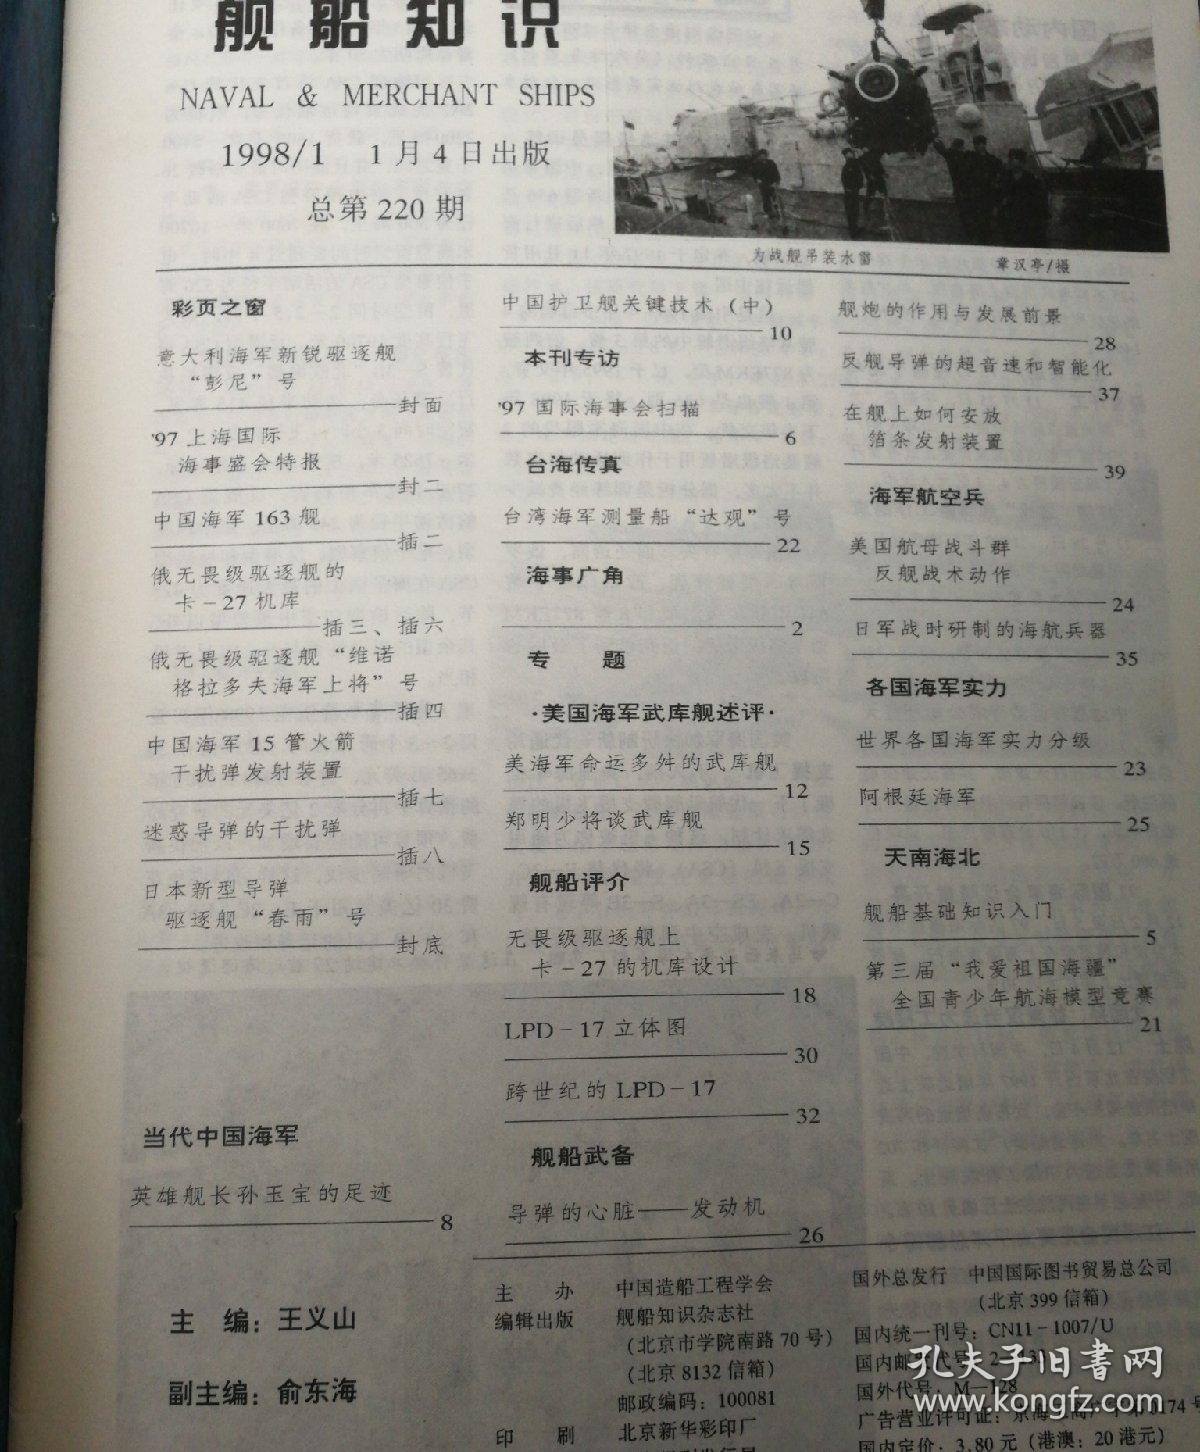 舰船知识
NAVAL & MERCHANT SHIPS
1998/1 1月4日出版
总第220期
为战舰吊装水雷 章汉亭/摄
彩页之窗
意大利海军新锐驱逐舰
“彭尼”号
封面
'97上海国际
海事盛会特报
封二
中国海军163舰
插二
俄无畏级驱逐舰的
卡-27机库
插三、插六
俄无畏级驱逐舰“维诺
格拉多夫海军上将”号
插四
中国海军15管火箭
干扰弹发射装置
插七
迷惑导弹的干扰弹
插八
日本新型导弹
驱逐舰“春雨”号
封底
当代中国海军
英雄舰长孙玉宝的足迹
8
中国护卫舰关键技术（中）
10
本刊专访
'97国际海事会扫描
6
台海传真
台湾海军测量船“达观”号
22
海事广角
2
专 题
·美国海军武库舰述评·
美海军命运多舛的武库舰
12
郑明少将谈武库舰
15
舰船评介
无畏级驱逐舰上
卡-27的机库设计
18
LPD-17立体图
30
跨世纪的LPD-17
32
舰船武备
导弹的心脏——发动机
26
舰炮的作用与发展前景
28
反舰导弹的超音速和智能化
37
在舰上如何安放
箔条发射装置
39
海军航空兵
美国航母战斗群
反舰战术动作
24
日军战时研制的海航兵器
35
各国海军实力
世界各国海军实力分级
23
阿根廷海军
25
天南海北
舰船基础知识入门
5
第三届“我爱祖国海疆”
全国青少年航海模型竞赛
21
主 编：王义山
副主编：俞东海
主 办 中国造船工程学会
编辑出版 舰船知识杂志社
（北京市学院南路70号）
（北京8132信箱）
邮政编码：100081
印 刷 北京新华彩印厂
国外总发行 中国国际图书贸易总公司
（北京399信箱）
国内统一刊号：CN11-1007/U
国内邮发代号：2-
国外代号：M-128
广告营业许可证：京海工商广字第0174号
国内定价：3.80元（港澳：20港元）
孔夫子旧书网
www.kongfz.com